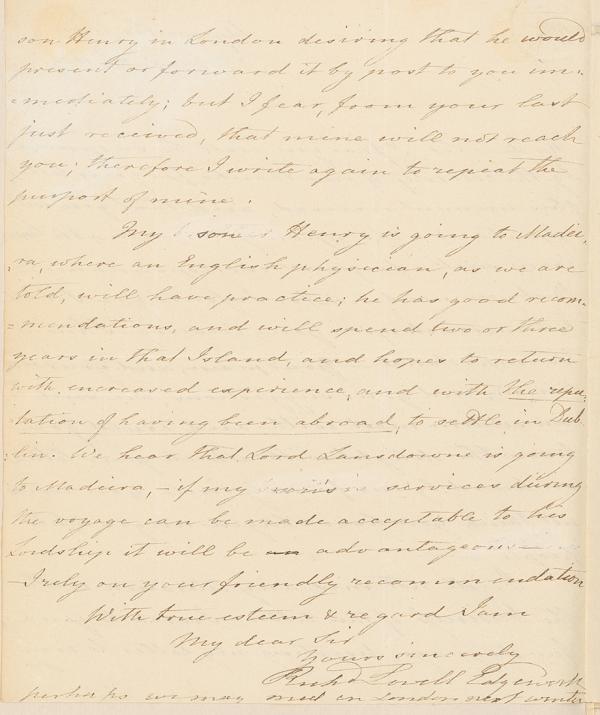 son Henry in London desiring that he would
present or forward it by post to you im-
=mediately; but I fear, from your last
just received, that mine will not reach
you; therefore I write again to repeat the
purport of mine.
My son Henry is going to Madei-
-ra, where an English physician, as we are
told, will have practice; he has good recom-
=mendations, and will spend two or three
years in that Island, and hopes to return
with increased experience, and with the repu-
-tation of having been abroad, to settle in Dub-
-lin. We hear that Lord Lansdowne is going
to Madeira, – if my son's services during
the voyage can be made acceptable to his
Lordship it will be advantageous —
- I rely on your friendly recommendation
With true esteem & regard I am
My dear Sir
yours sincerely
Richd Lovell Edgeworth
perhaps we may meet in London next winter